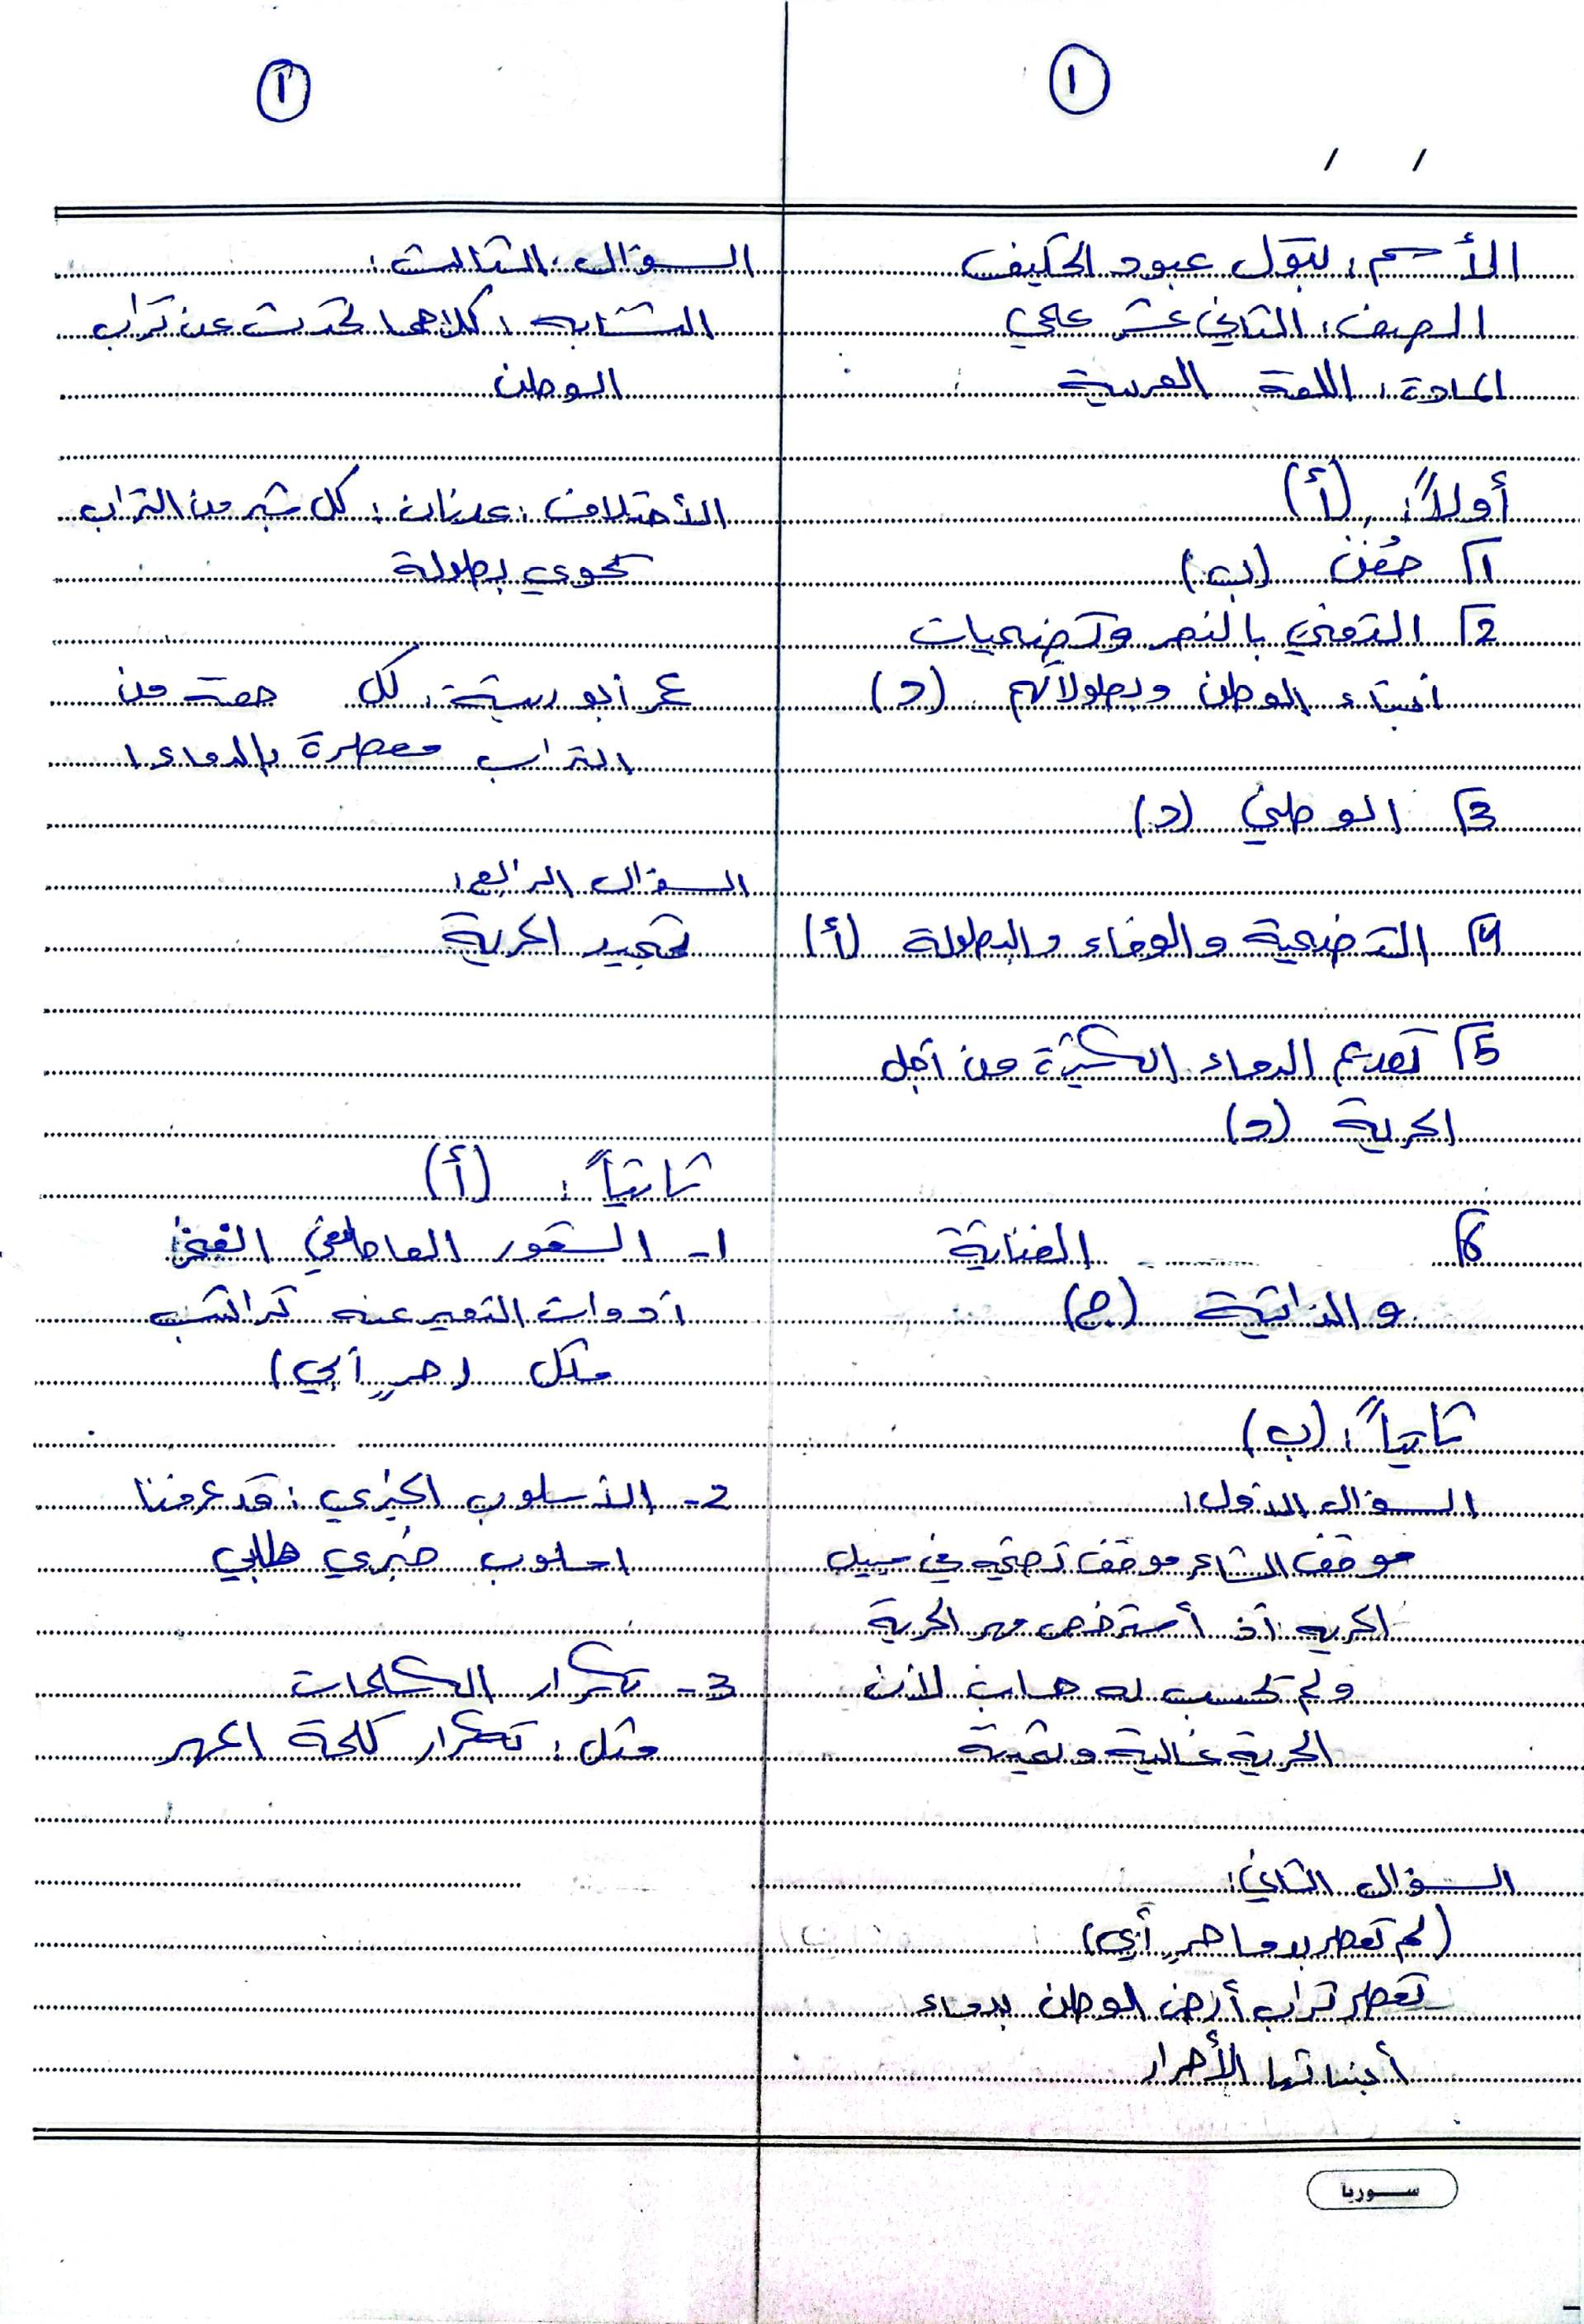 ١
/ /
الأسم: بتول عبود الخليف
الصف: الثاني عشر علمي
المادة: اللغة العربية
أولاً: (أ)
1 حُفن (ب)
2 التغني بالنصر وتضحيات
ابناء الوطن وبطولاتهم (د)
3 الوطني (د)
4 التضحية والوفاء والبطولة (أ)
5 تقديم الدماء الكثيرة من أجل
الحرية (د)
6 الغنائية
والذاتية (ج)
ثانياً: (ب)
السؤال الاول:
موقف الشاعر موقف تضحيه في سبيل
الحريه اذ أسترخص مهر الحرية
ولم تحسب له حساب لأن
الحرية غالية وثمينة
السؤال الثاني:
(لم تعطر بدما حرٍ أبي)
تعطر تراب أرض الوطن بدماء
أبنائها الأحرار
سوريا
١
السؤال الثالث:
التشابه: كلاهما تحدث عن تراب
الوطن
الأختلاف: عدنان: كل شبر من التراب
تحوي بطولة
عمر أبو ريشة: كل حفنة من
التراب معطرة بالدماء
السؤال الرابع:
تمجيد الحرية
ثانياً: (أ)
1- الشعور العاطفي الفخر
أدوات التعبير عنه تراكيب
مثل (حرٍ أبي)
2- الأسلوب الخبري: قد عرفنا
اسلوب خبري طلبي
3- تكرار الكلمات
مثل: تكرار كلمة المهر